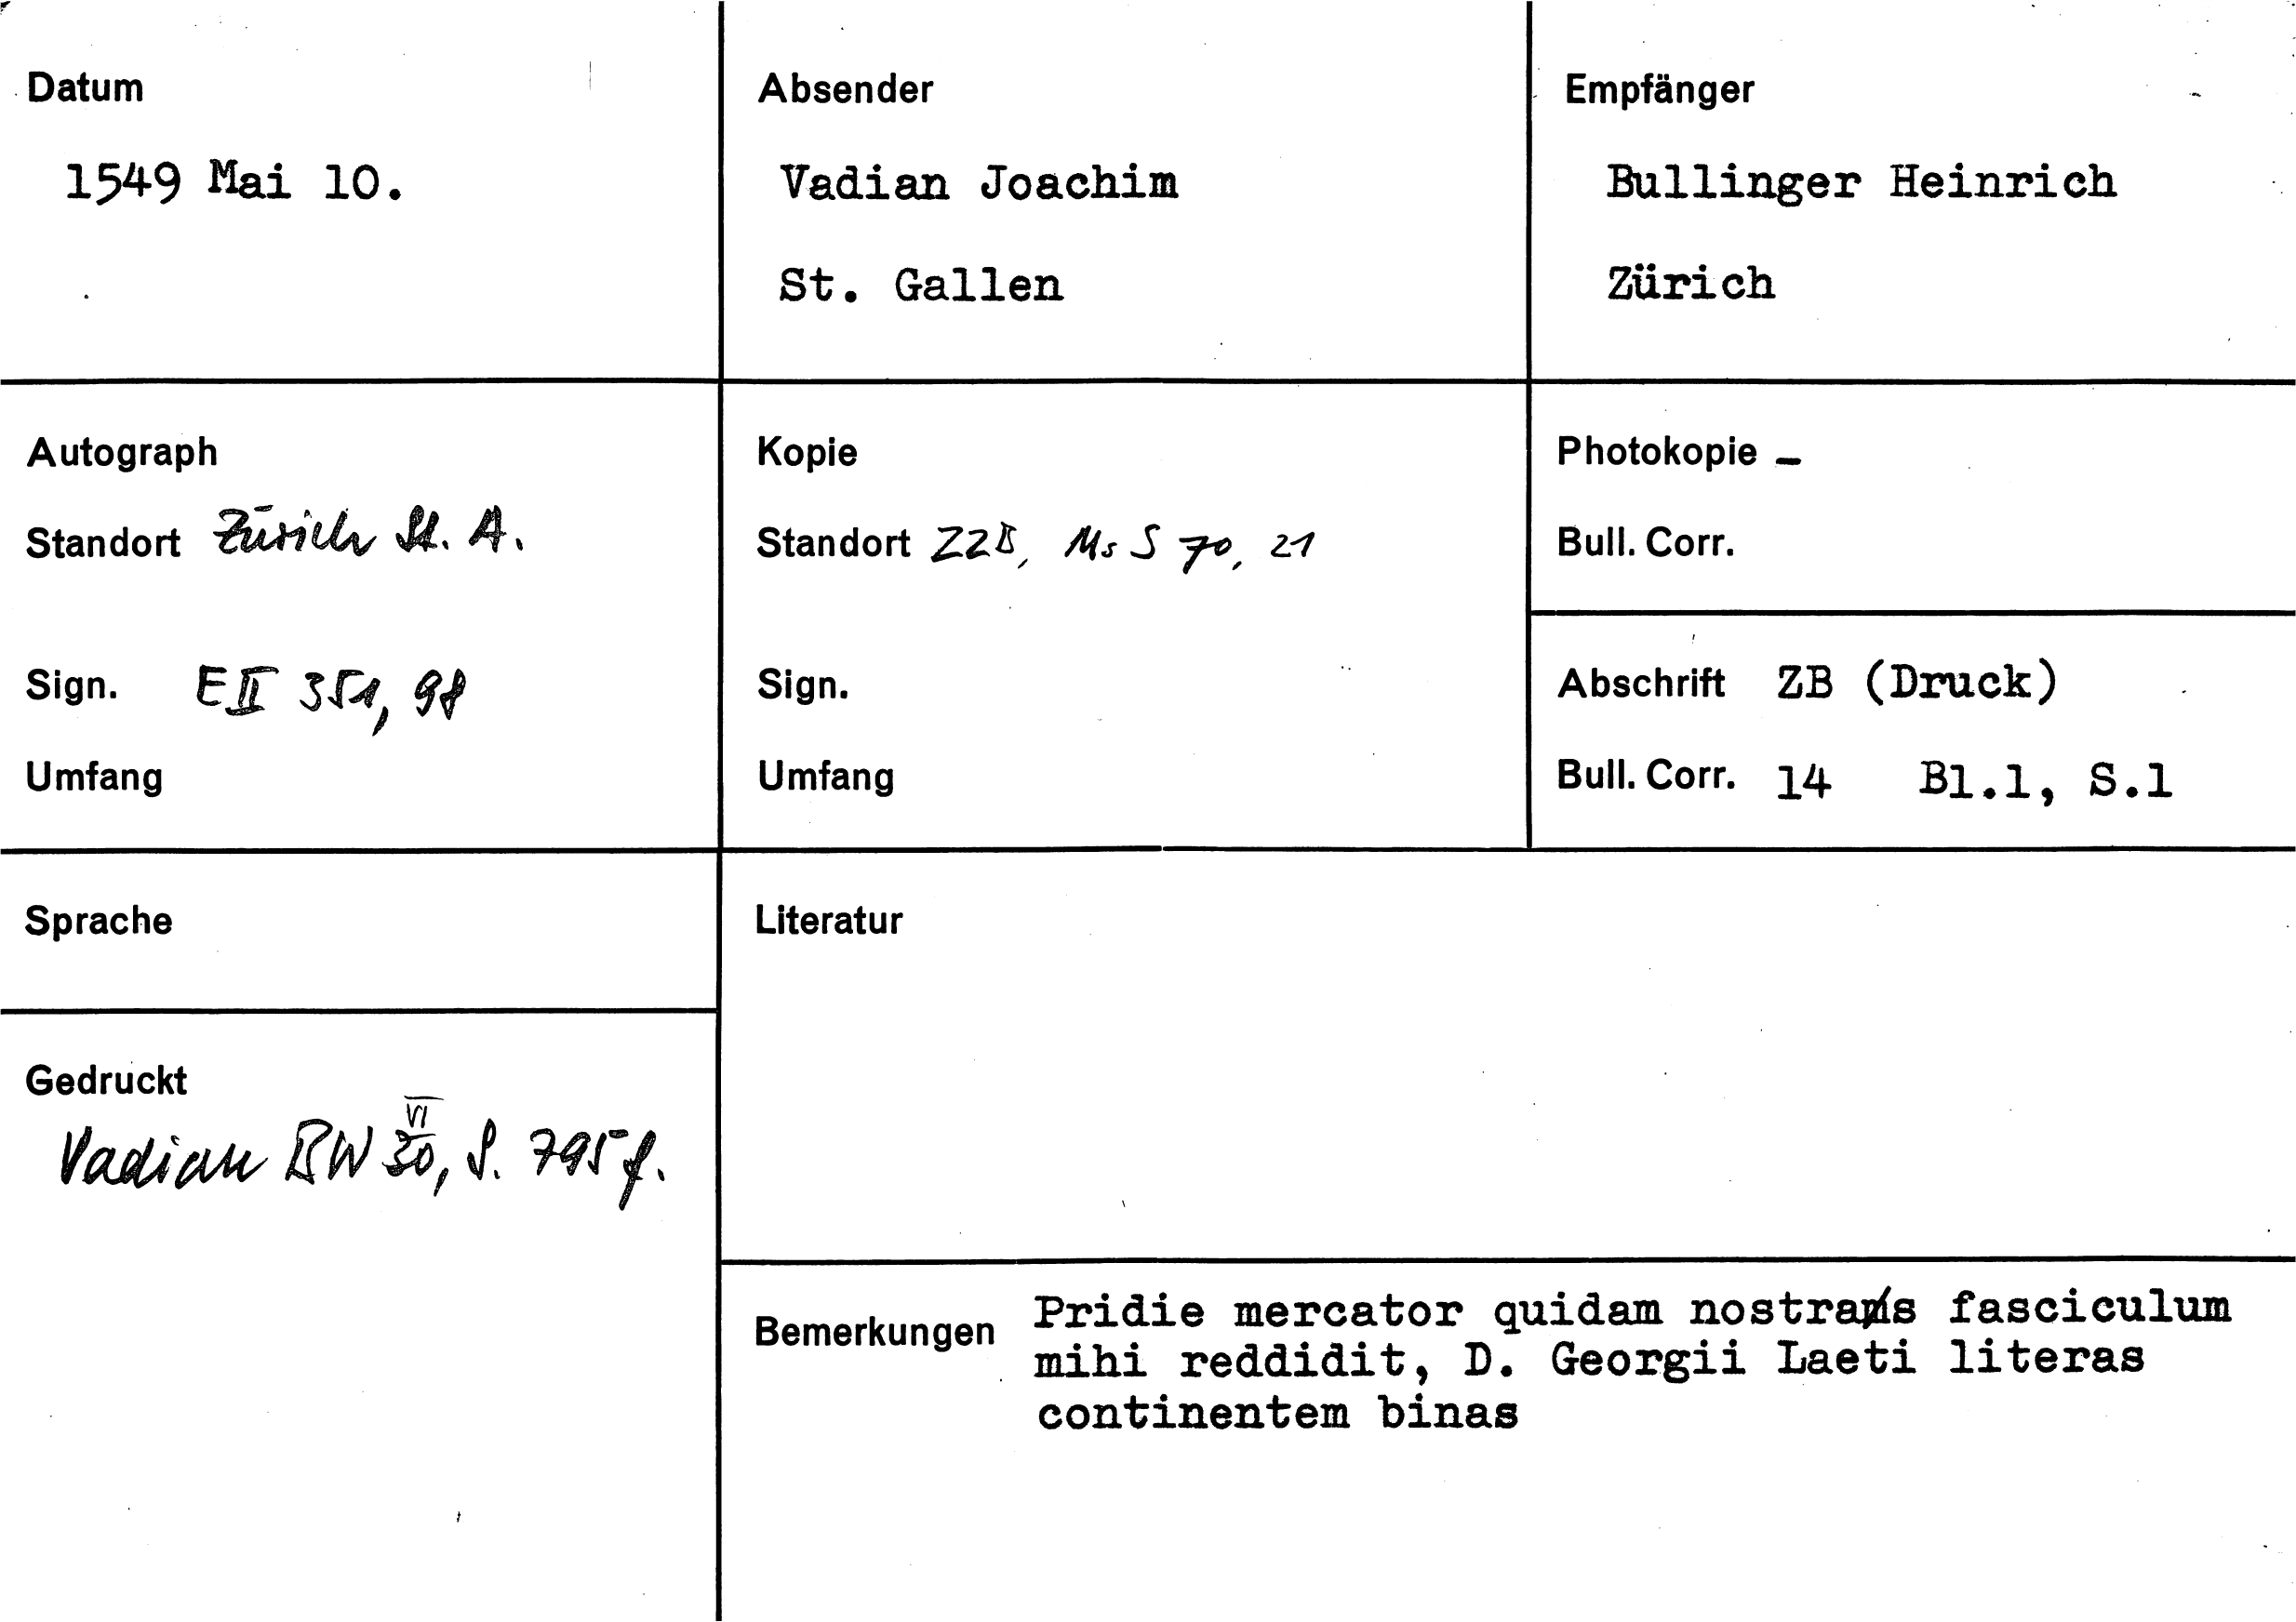 Datum
1549 Mai 10.
Absender
Vadian Joachim
St. Gallen
Empfänger
Bullinger Heinrich
Zürich
Autograph
Standort Zürich St. A.
Sign. E II 351, 98
Umfang
Kopie
Standort ZZB, Ms S 70, 21
Sign.
Umfang
Photokopie –
Bull. Corr.
Abschrift ZB (Druck)
Bull. Corr. 14 Bl.1, S.1
Sprache
Literatur
Gedruckt
VI
Vadian BW 30, S. 795 f.
Bemerkungen Pridie mercator quidam nostras fasciculum
mihi reddidit, D. Georgii Laeti literas
continentem binas